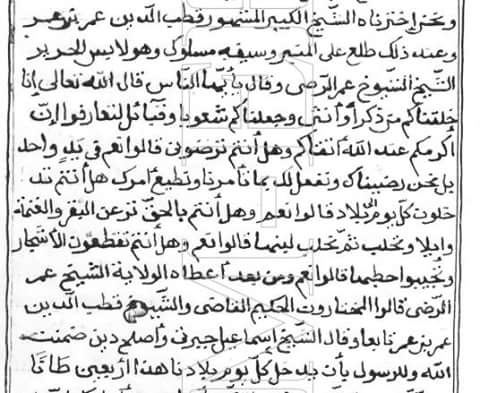 ونحن إخترناه الشيخ الكبير المشهور قطب الدين عمر بن عمر
وعند ذلك طلع على المنبر وسيفه مسلوك وهو لابس الحرير
الشيخ الشيوخ عمر الرضى وقال يأيها الناس قال الله تعالى إنا
خلقناكم من ذكر أو أنثى وجعلناكم شعوبا وقبائل لتعارفوا إن
أكرمكم عند الله أتقاكم وهل أنتم ترضونى قالوا نعم في يد واحد
بل نحن رضيناك ونفعل لك بما تأمرنا ونطيع أمرك هل أنتم تد
خلون كل يوم البلاد قالوا نعم وهل أنتم بالحق ترعن البقر والغنمة
وإبلا وتحلب ثم تحلب لبنها قالوا نعم وهل أنتم تقطعون الأشجار
وتجيبوا حطبها قالوا نعم ومن بعد أعطاه الولاية الشيخ عمر
الرضى قالوا المختارون الحكيم القاضى والشيوخ قطب الدين
عمر بن عمر تابعا وقال الشيخ إسماعيل جبرتى وأصلح دين ضمنت
الله وللرسول بأن يدخل كل يوم بلادنا هذا أربعين